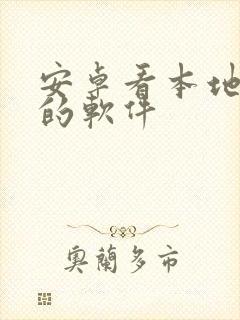 安卓看本地
的軟件
奧蘭多市